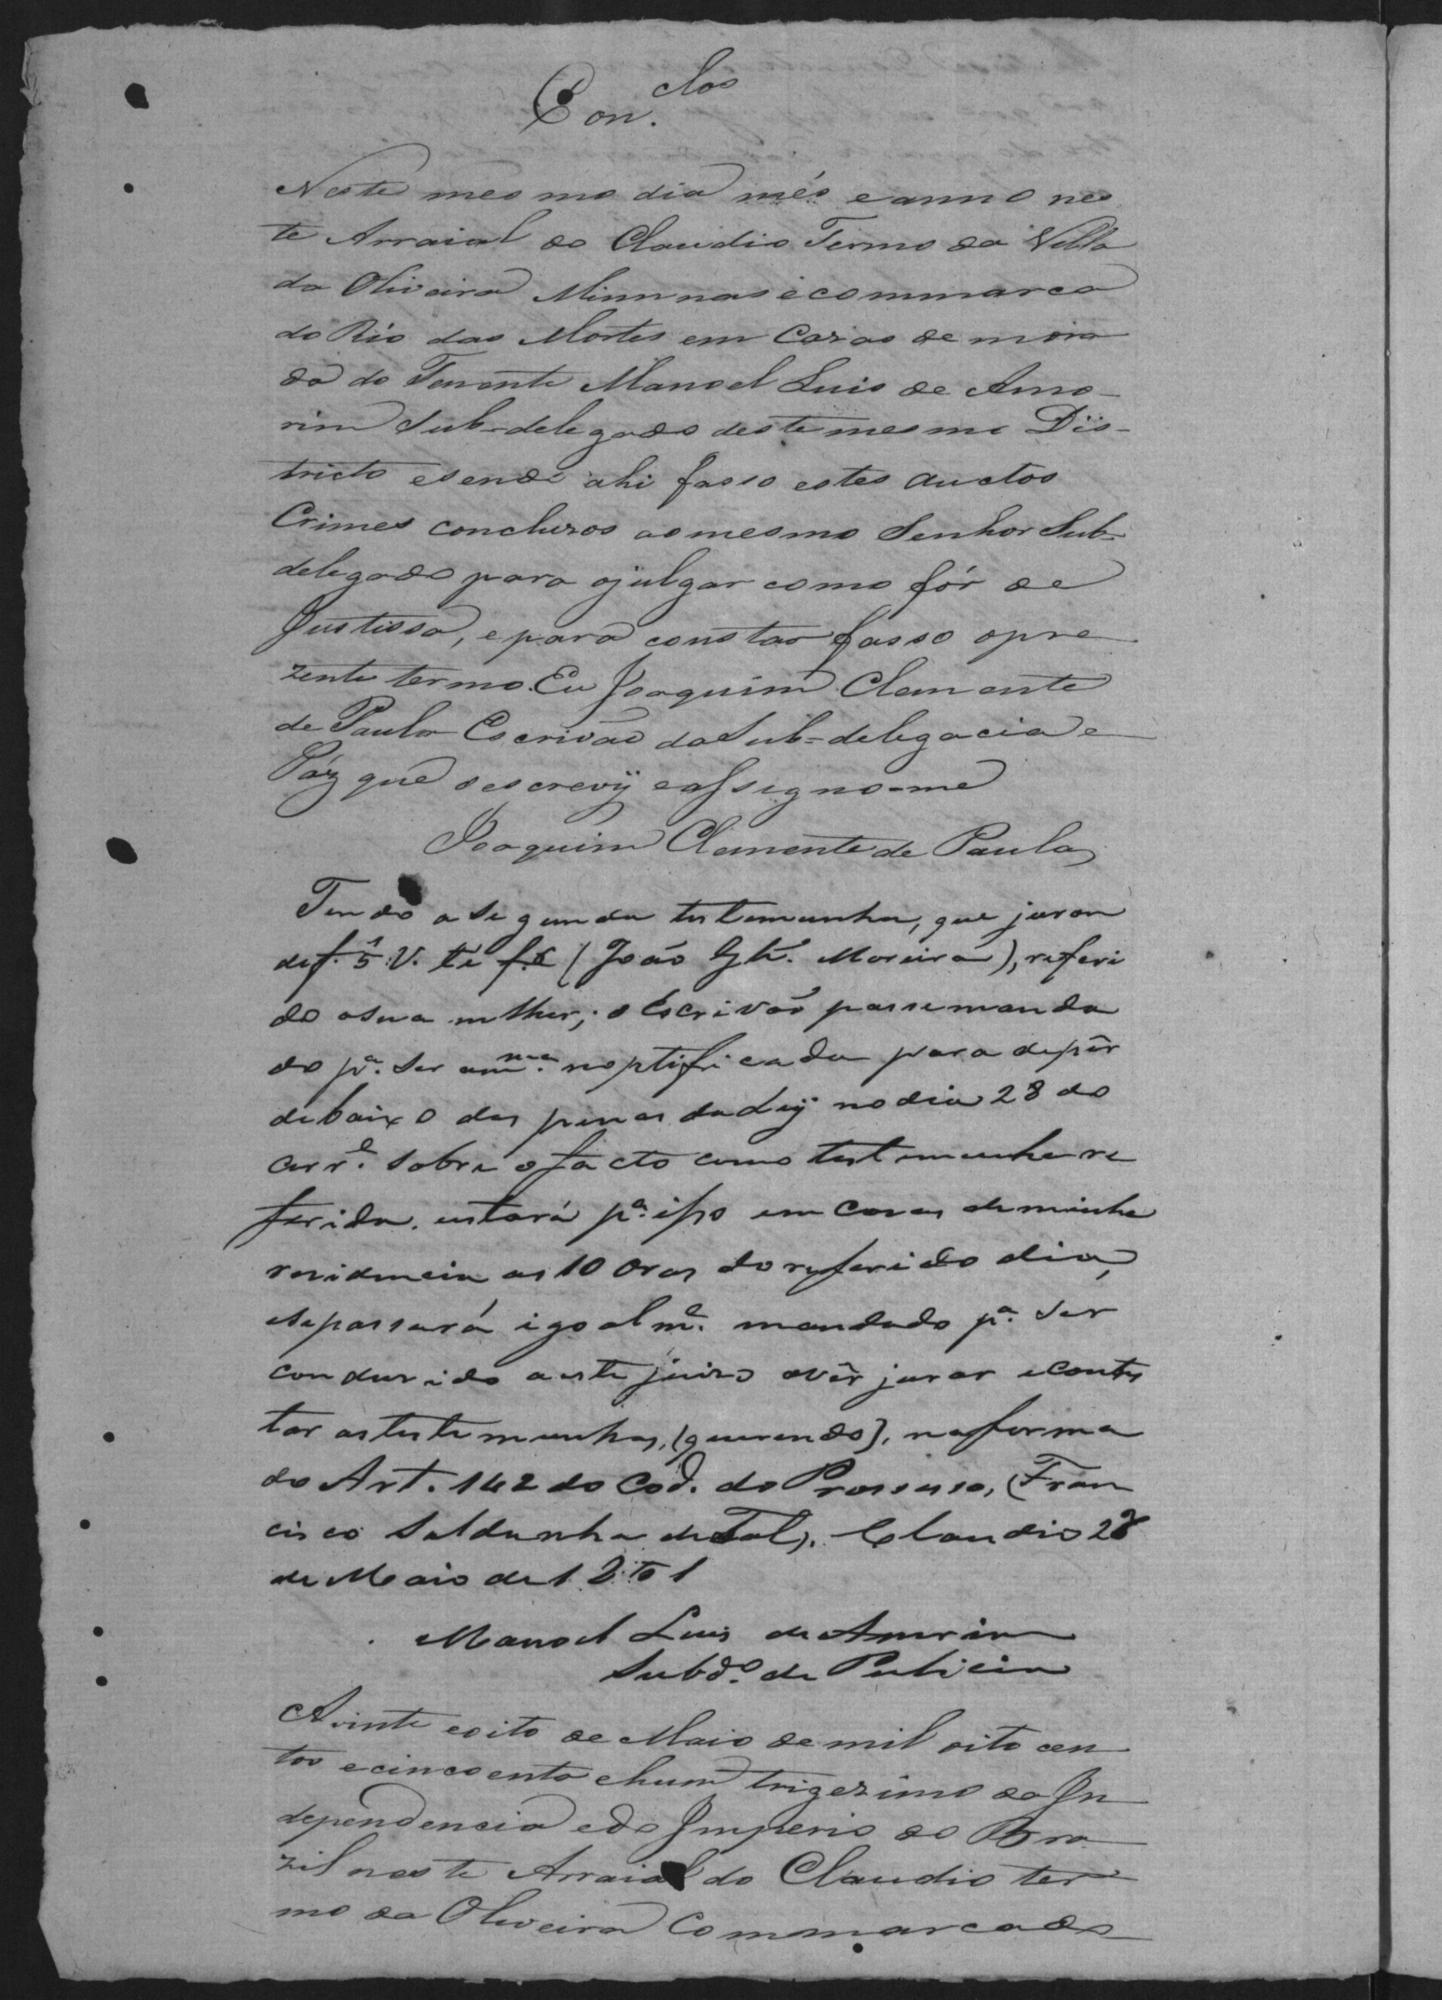 Con.clos
Neste mesmo dia més e anno nes
te Arraial do Claudio Termo da Villa
da Oliveira Minnnas e commarca
do Rio das Mortes em Cazas de mora
da do Tenente Manoel Luis de Amo-
rim Sub-delegado deste mesmo Dis-
tricto e sendo ahi fasso estes auctos
Crimes concluzos ao mesmo Senhor Sub-
delegado para o julgar como fór de
Justissa, e para constar fasso o pre
zente termo. Eu Joaquim Clemente
de Paula Escrivão da Sub-delegacia e
Páz que o escrevy e assigno-me
Joaquim Clemente de Paula
Tendo a segunda testemunha, que jurou
de f. 5 V. té f. 6 (João Glz. Moreira), referi
do a sua mulher; o Escrivão passe manda
do pª. ser a mma. noptificada para depôr
debaixo das penas da Ley no dia 28 do
corre. sobre o facto como testemunha re
ferida. estará pª. isso em cazas de minha
residencia as 10 oras do referido dia,
e se passará igoalme. mandado pª. ser
conduzido a este juizo a vêr jurar e contes
tar as testemunhas, (querendo), na forma
do Art. 142 do Cod. do Prossesso, (Fran
cisco Saldanha de Tal). Claudio 28
de Maio de 1851
Manoel Luis de Amorim
Subdo. de Policia
A vinte e oito de Maio de mil oito cen
tos e cincoenta e hum trigezimo da In
dependencia e do Imperio do Bra
zil neste Arraial do Claudio ter
mo da Oliveira Commarca do